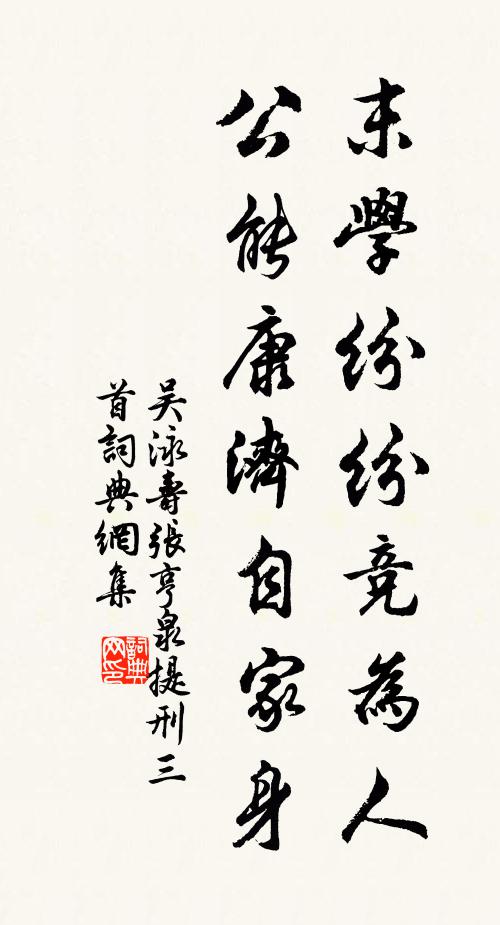 末學紛紛竞為人
公能康濟自家身
吴泳壽張亨泉提刑三
首詞典網集
詞典
网印